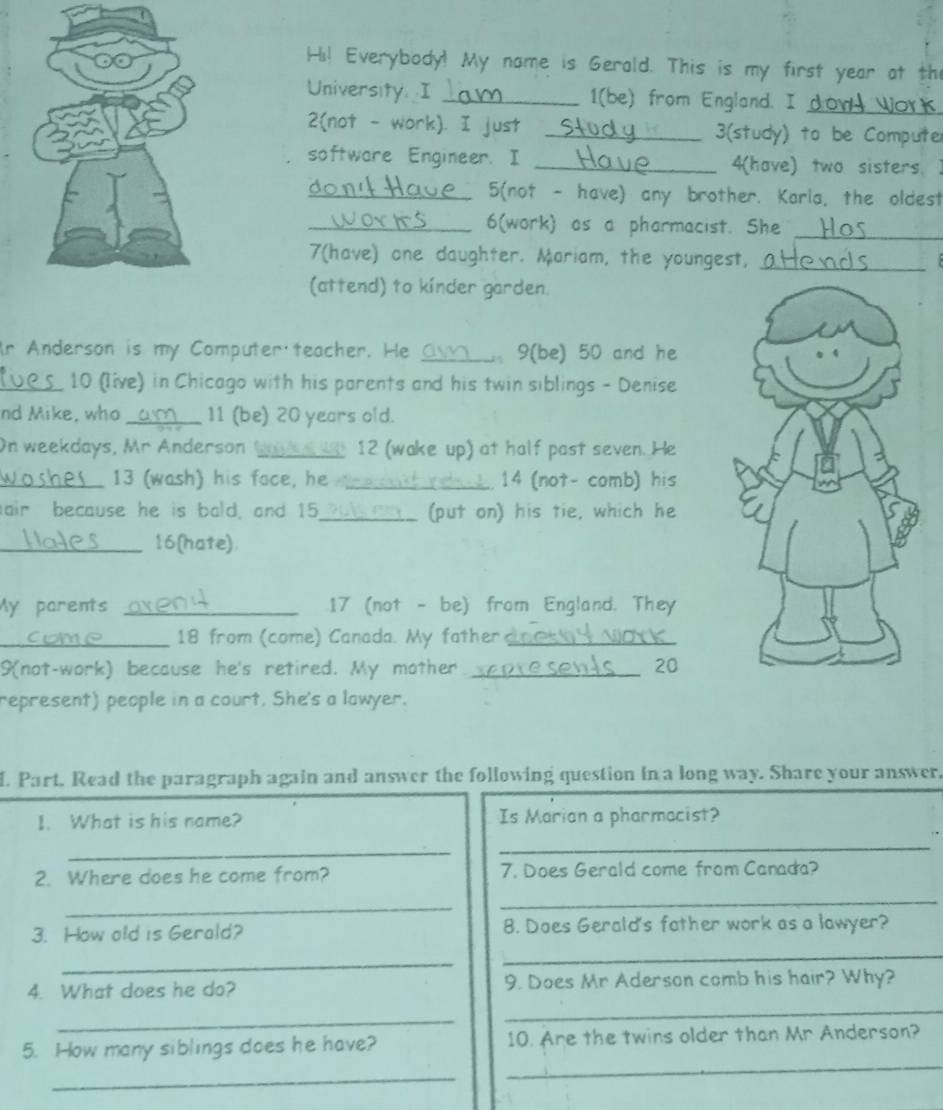 Hi! Everybody! My name is Gerald. This is my first year at the
University. I am 1(be) from England. I don't work
2(not - work). I just study 3(study) to be Computer
software Engineer. I Have 4(have) two sisters. I
don't Have 5(not - have) any brother. Karla, the oldest
works 6(work) as a pharmacist. She Has
7(have) one daughter. Mariam, the youngest, attends
(attend) to kínder garden.
Mr Anderson is my Computer teacher. He am 9(be) 50 and he
lives 10 (live) in Chicago with his parents and his twin siblings - Denise
and Mike, who am 11 (be) 20 years old.
On weekdays, Mr Anderson 12 (wake up) at half past seven. He
washes 13 (wash) his face, he 14 (not- comb) his
hair because he is bald, and 15 (put on) his tie, which he
Hates 16(hate).
My parents aren't 17 (not - be) from England. They
come 18 from (come) Canada. My father doesn't work
19(not-work) because he's retired. My mother represents 20
(represent) people in a court. She's a lawyer.
I. Part. Read the paragraph again and answer the following question in a long way. Share your answer.
1. What is his name?
Is Marian a pharmacist?
2. Where does he come from?
7. Does Gerald come from Canada?
3. How old is Gerald?
8. Does Gerald's father work as a lawyer?
4. What does he do?
9. Does Mr Aderson comb his hair? Why?
5. How many siblings does he have?
10. Are the twins older than Mr Anderson?